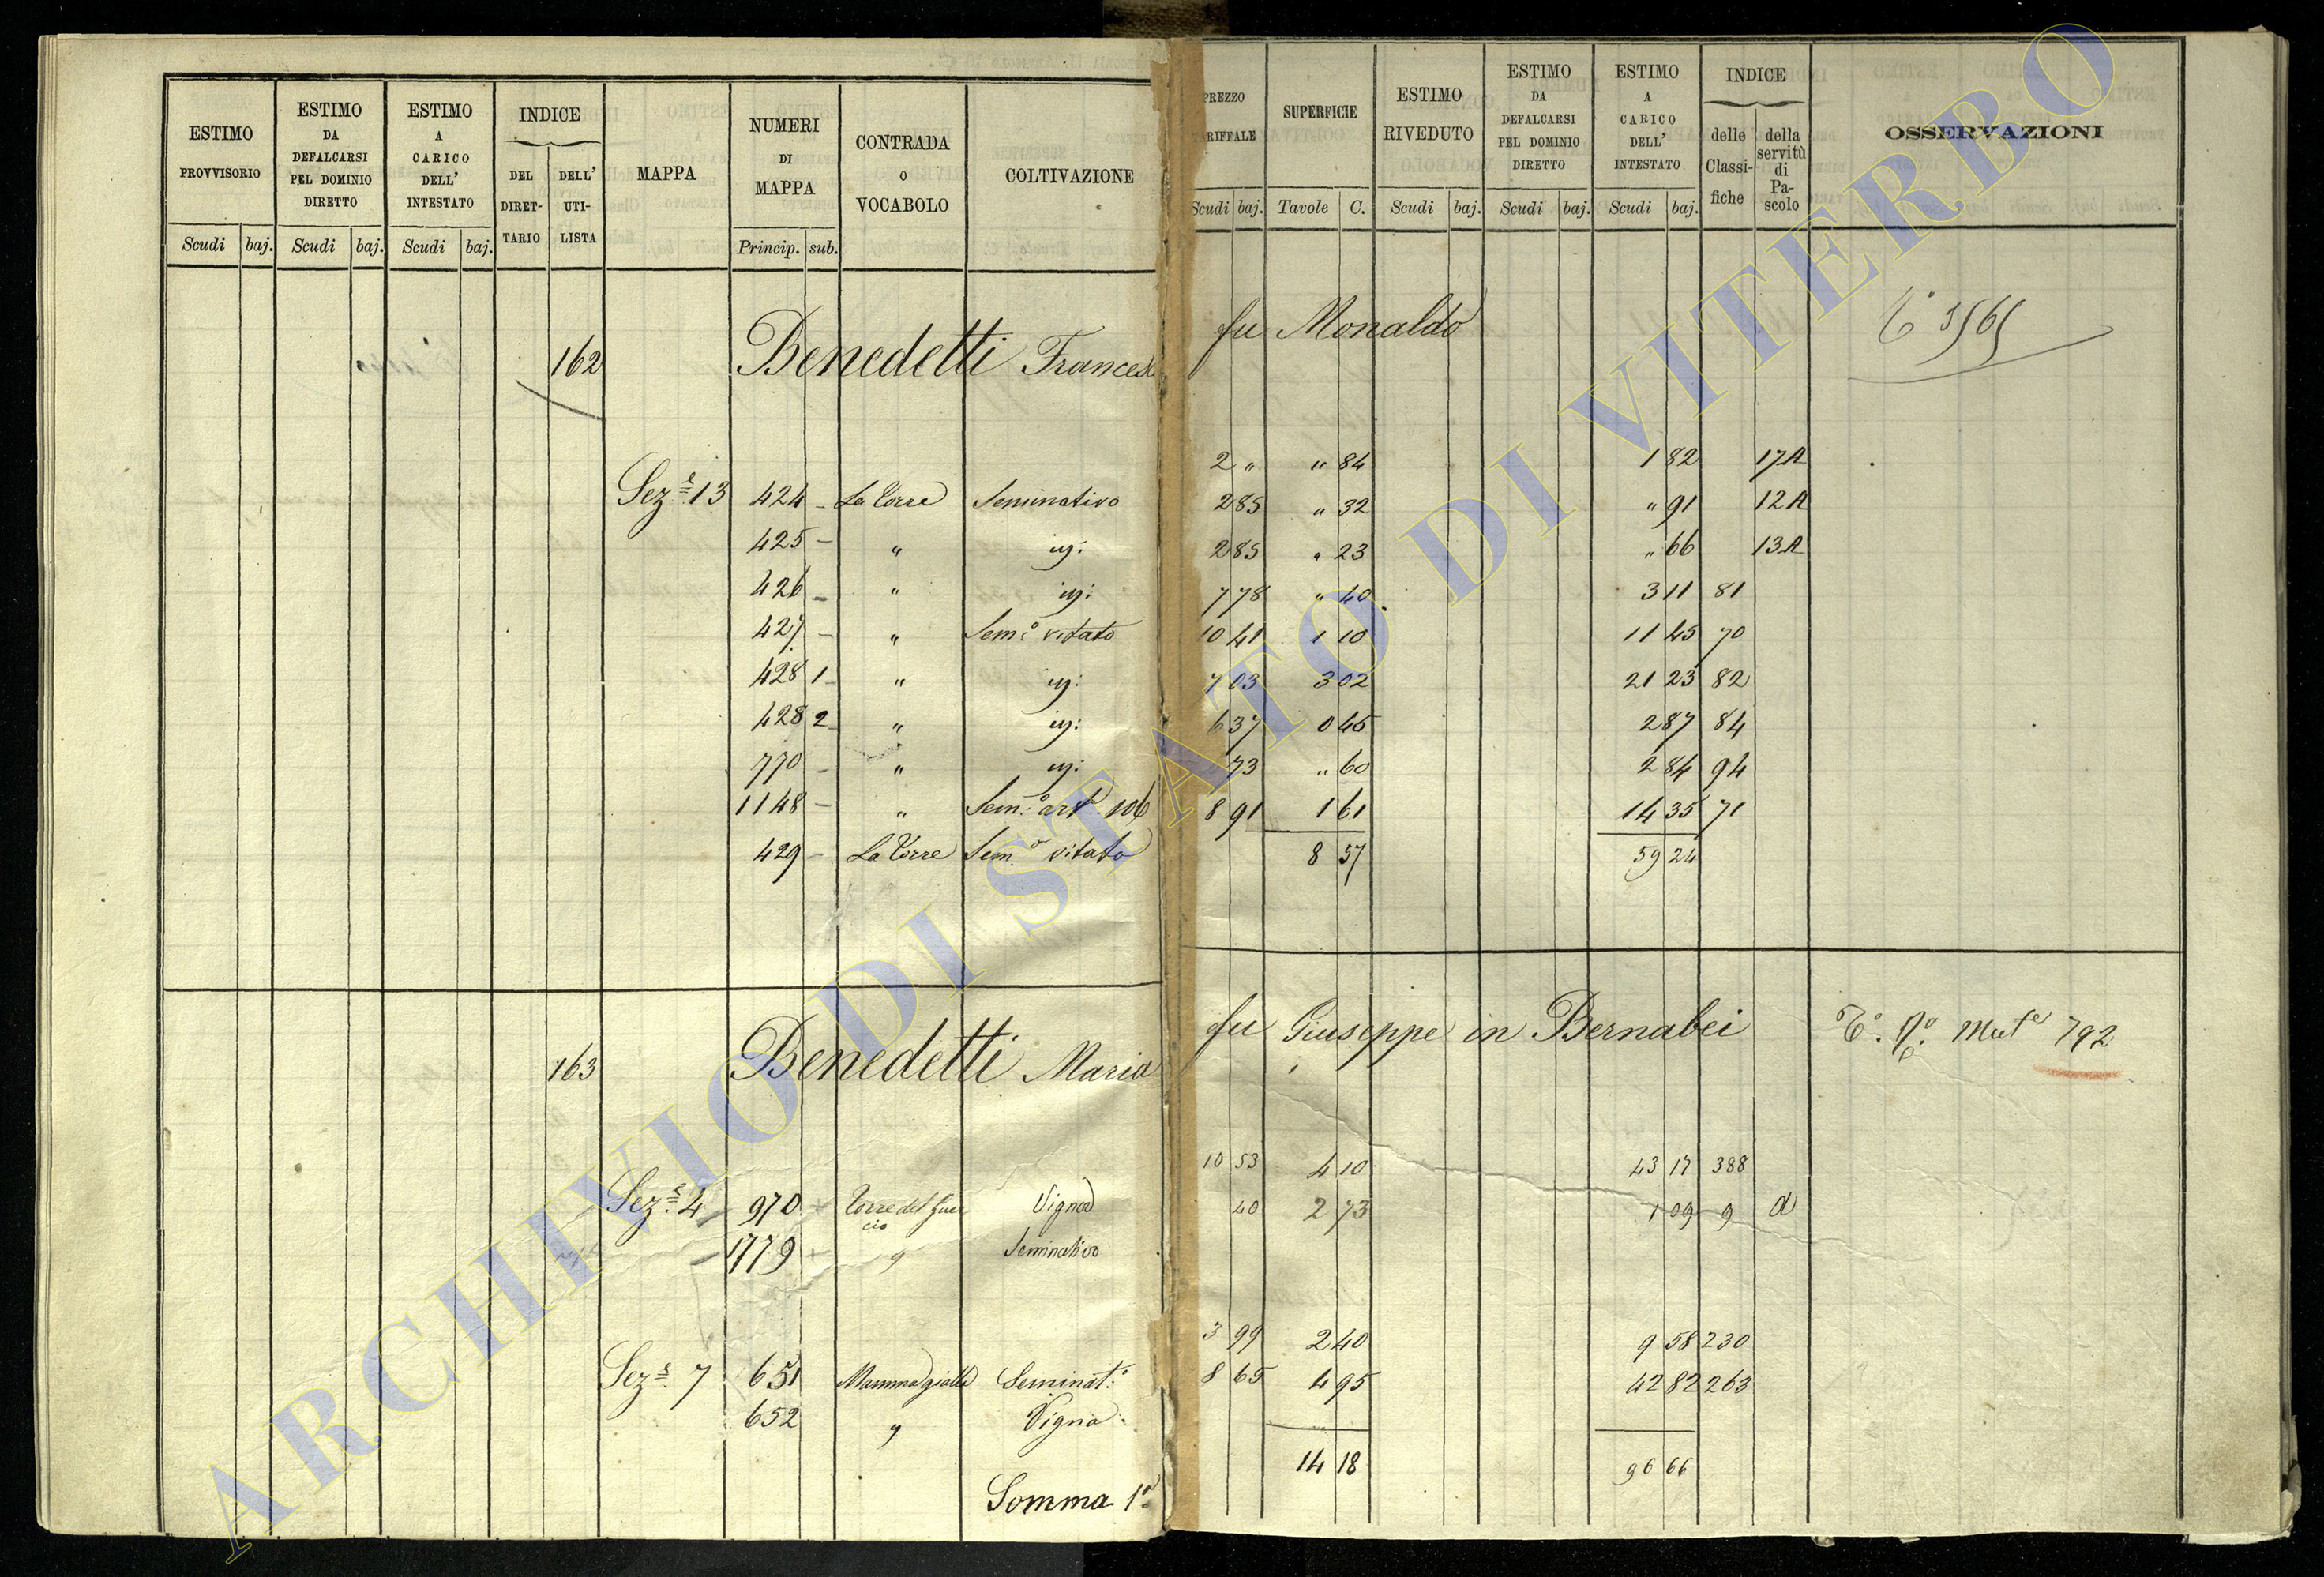 ESTIMO PROVVISORIO Scudi baj.
ESTIMO DA DEFALCARSI PEL DOMINIO DIRETTO Scudi baj.
ESTIMO A CARICO DELL' INTESTATO Scudi baj.
INDICE DEL DIRET- TARIO DELL' UTI- LISTA
MAPPA
NUMERI DI MAPPA Princip. sub.
CONTRADA O VOCABOLO
COLTIVAZIONE
PREZZO TARIFFALE Scudi baj.
SUPERFICIE Tavole C.
ESTIMO RIVEDUTO Scudi baj.
ESTIMO DA DEFALCARSI PEL DOMINIO DIRETTO Scudi baj.
ESTIMO A CARICO DELL' INTESTATO Scudi baj.
INDICE delle Classi- fiche della servitù di Pa- scolo
OSSERVAZIONI
162 Benedetti Francesco fu Monaldo
Sez.e 13 424 – La Torre Seminativo 2 " " 84 1 82 17 A
425 – " ig: 2 85 " 32 " 91 12 A
426 – " ig: 2 85 " 23 " 66 13 A
427 – " Sem.o vitato 7 78 " 40 3 11 81
428 1 – " ig: 10 41 1 10 11 45 70
428 2 " ig: 7 03 3 02 21 23 82
770 – " ig: 6 37 0 45 2 87 84
1148 – " Sem.o 73 " 60 2 84 94
429 – La Torre Sem.o vitato 8 91 1 61 14 35 71
8 57 59 24
163 Benedetti Maria fu Giuseppe in Bernabei 792
Sez.e 4 970 Torre del Guercio Vigna 10 53 4 10 43 17 388
1779 " Seminativo 40 2 73 1 09 9 a
Sez.e 7 651 Mammagialla Seminat.o 3 99 2 40 9 58 230
652 " Vigna 8 65 4 95 42 82 263
Somma 1a 14 18 96 66
ARCHIVIO DI STATO DI VITERBO